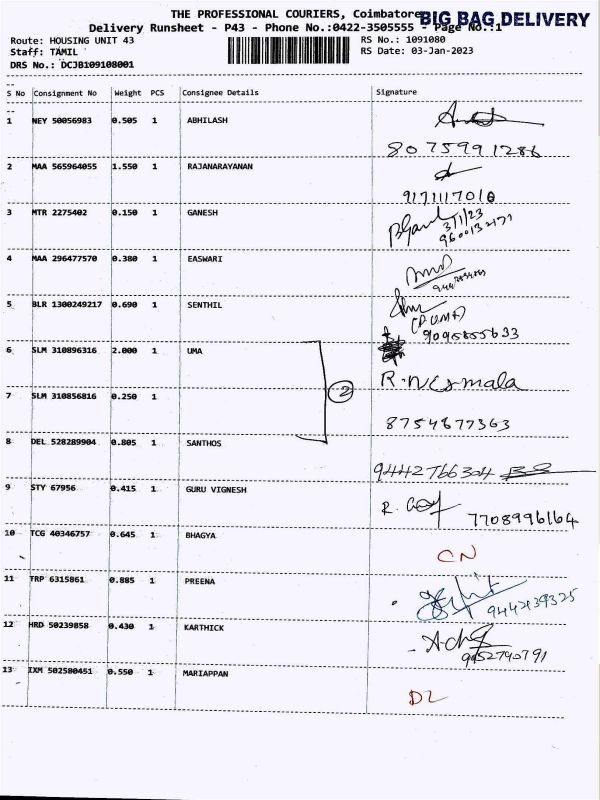 THE PROFESSIONAL COURIERS, Coimbatore
BIG BAG DELIVERY
Delivery Runsheet - P43 - Phone No.:0422-3505555 - Page No.:1
Route: HOUSING UNIT 43 RS No.: 1091080
Staff: TAMIL RS Date: 03-Jan-2023
DRS No.: DCJB109108001
S No Consignment No Weight PCS Consignee Details Signature
1 NEY 50056983 0.505 1 ABHILASH
8075991286
2 MAA 565964055 1.550 1 RAJANARAYANAN
9171117010
3 MTR 2275402 0.150 1 GANESH
3/1/23
4 MAA 296477570 0.380 1 EASWARI
5 BLR 1300249217 0.690 1 SENTHIL
9095855633
6 SLM 310896316 2.000 1 UMA
2
7 SLM 310856816 0.250 1
8754877363
8 DEL 528289904 0.805 1 SANTHOS
9442766304
9 STY 67956 0.415 1 GURU VIGNESH
7708996164
10 TCG 40346757 0.645 1 BHAGYA
CN
11 TRP 6315861 0.885 1 PREENA
9442139325
12 HRD 50239858 0.430 1 KARTHICK
13 IXM 502580451 0.550 1 MARIAPPAN
DL